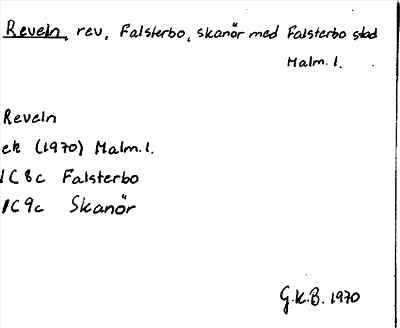 Reveln, rev, Falsterbo, Skanör med Falsterbo stad
Malm. l.
Reveln
ek (1970) Malm. l.
1C8c Falsterbo
1C9c Skanör
G.K.B. 1970